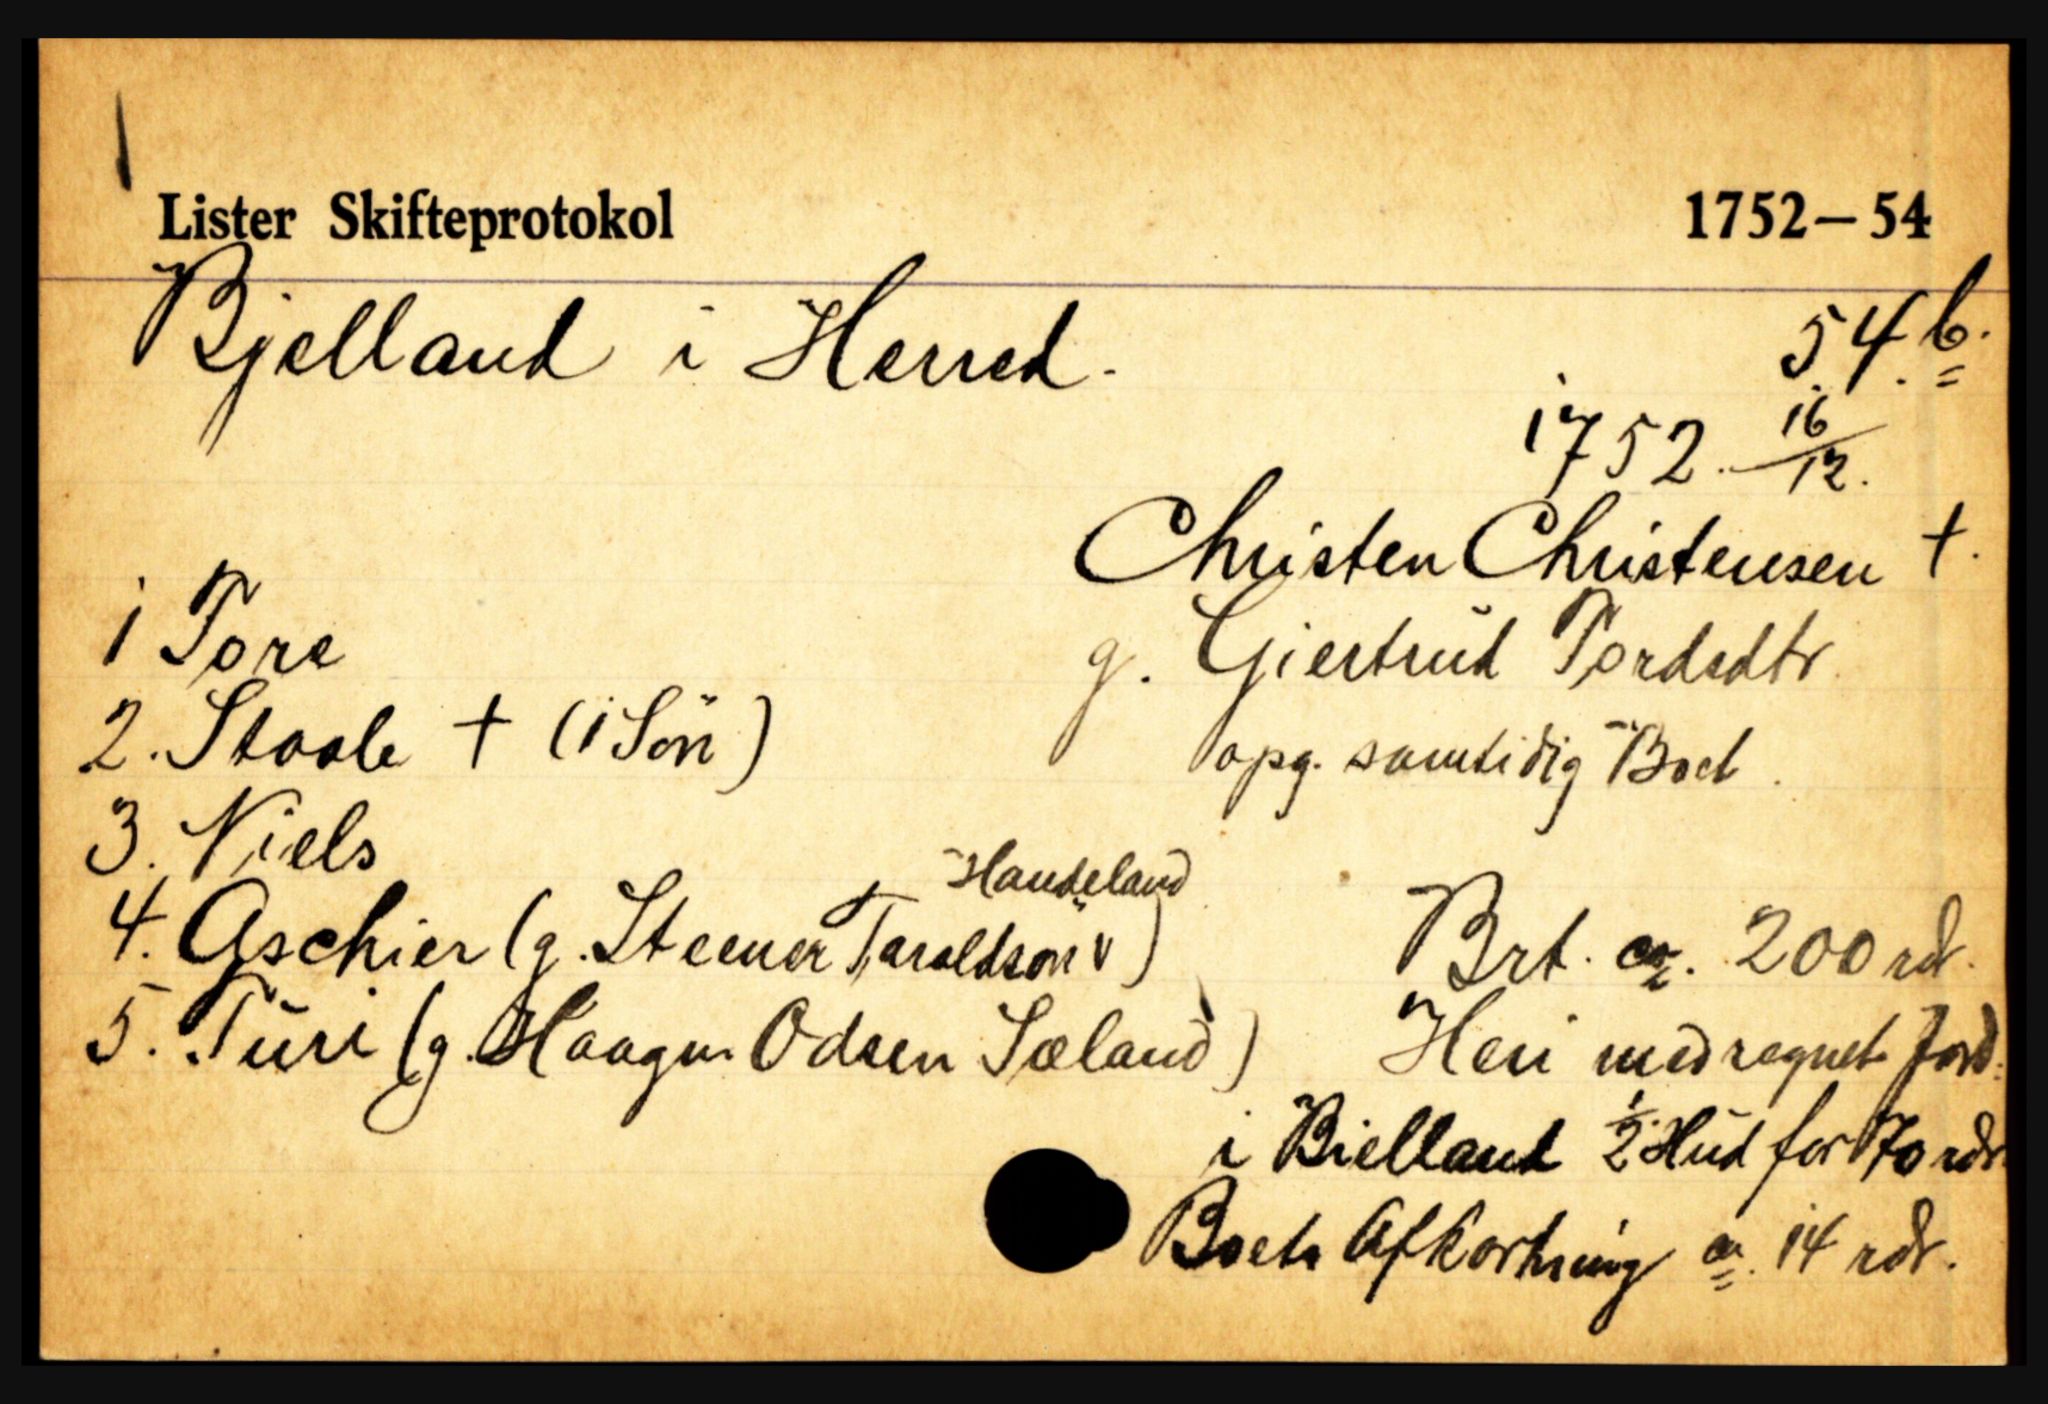 Lister Skifteprotokol 1752–54
Bjelland i Herred. 54.b.
1752. 16/12.
Christen Christensen †.
1 Tore
g. Giertrud Tordsdtr.
2. Staale † (1 Sön)
opg. samtidig Boet.
3. Niels
Handeland
4. Aschier (g. Steener Taraldsön) Brt. ca. 200 rdr.
5. Turi (g. Haagen Odsen Sæland) Heri medregnet Jord:
i Bielland 1/2 Hud for 70 rdr.
Boets Afkortning ca. 14 rdr.